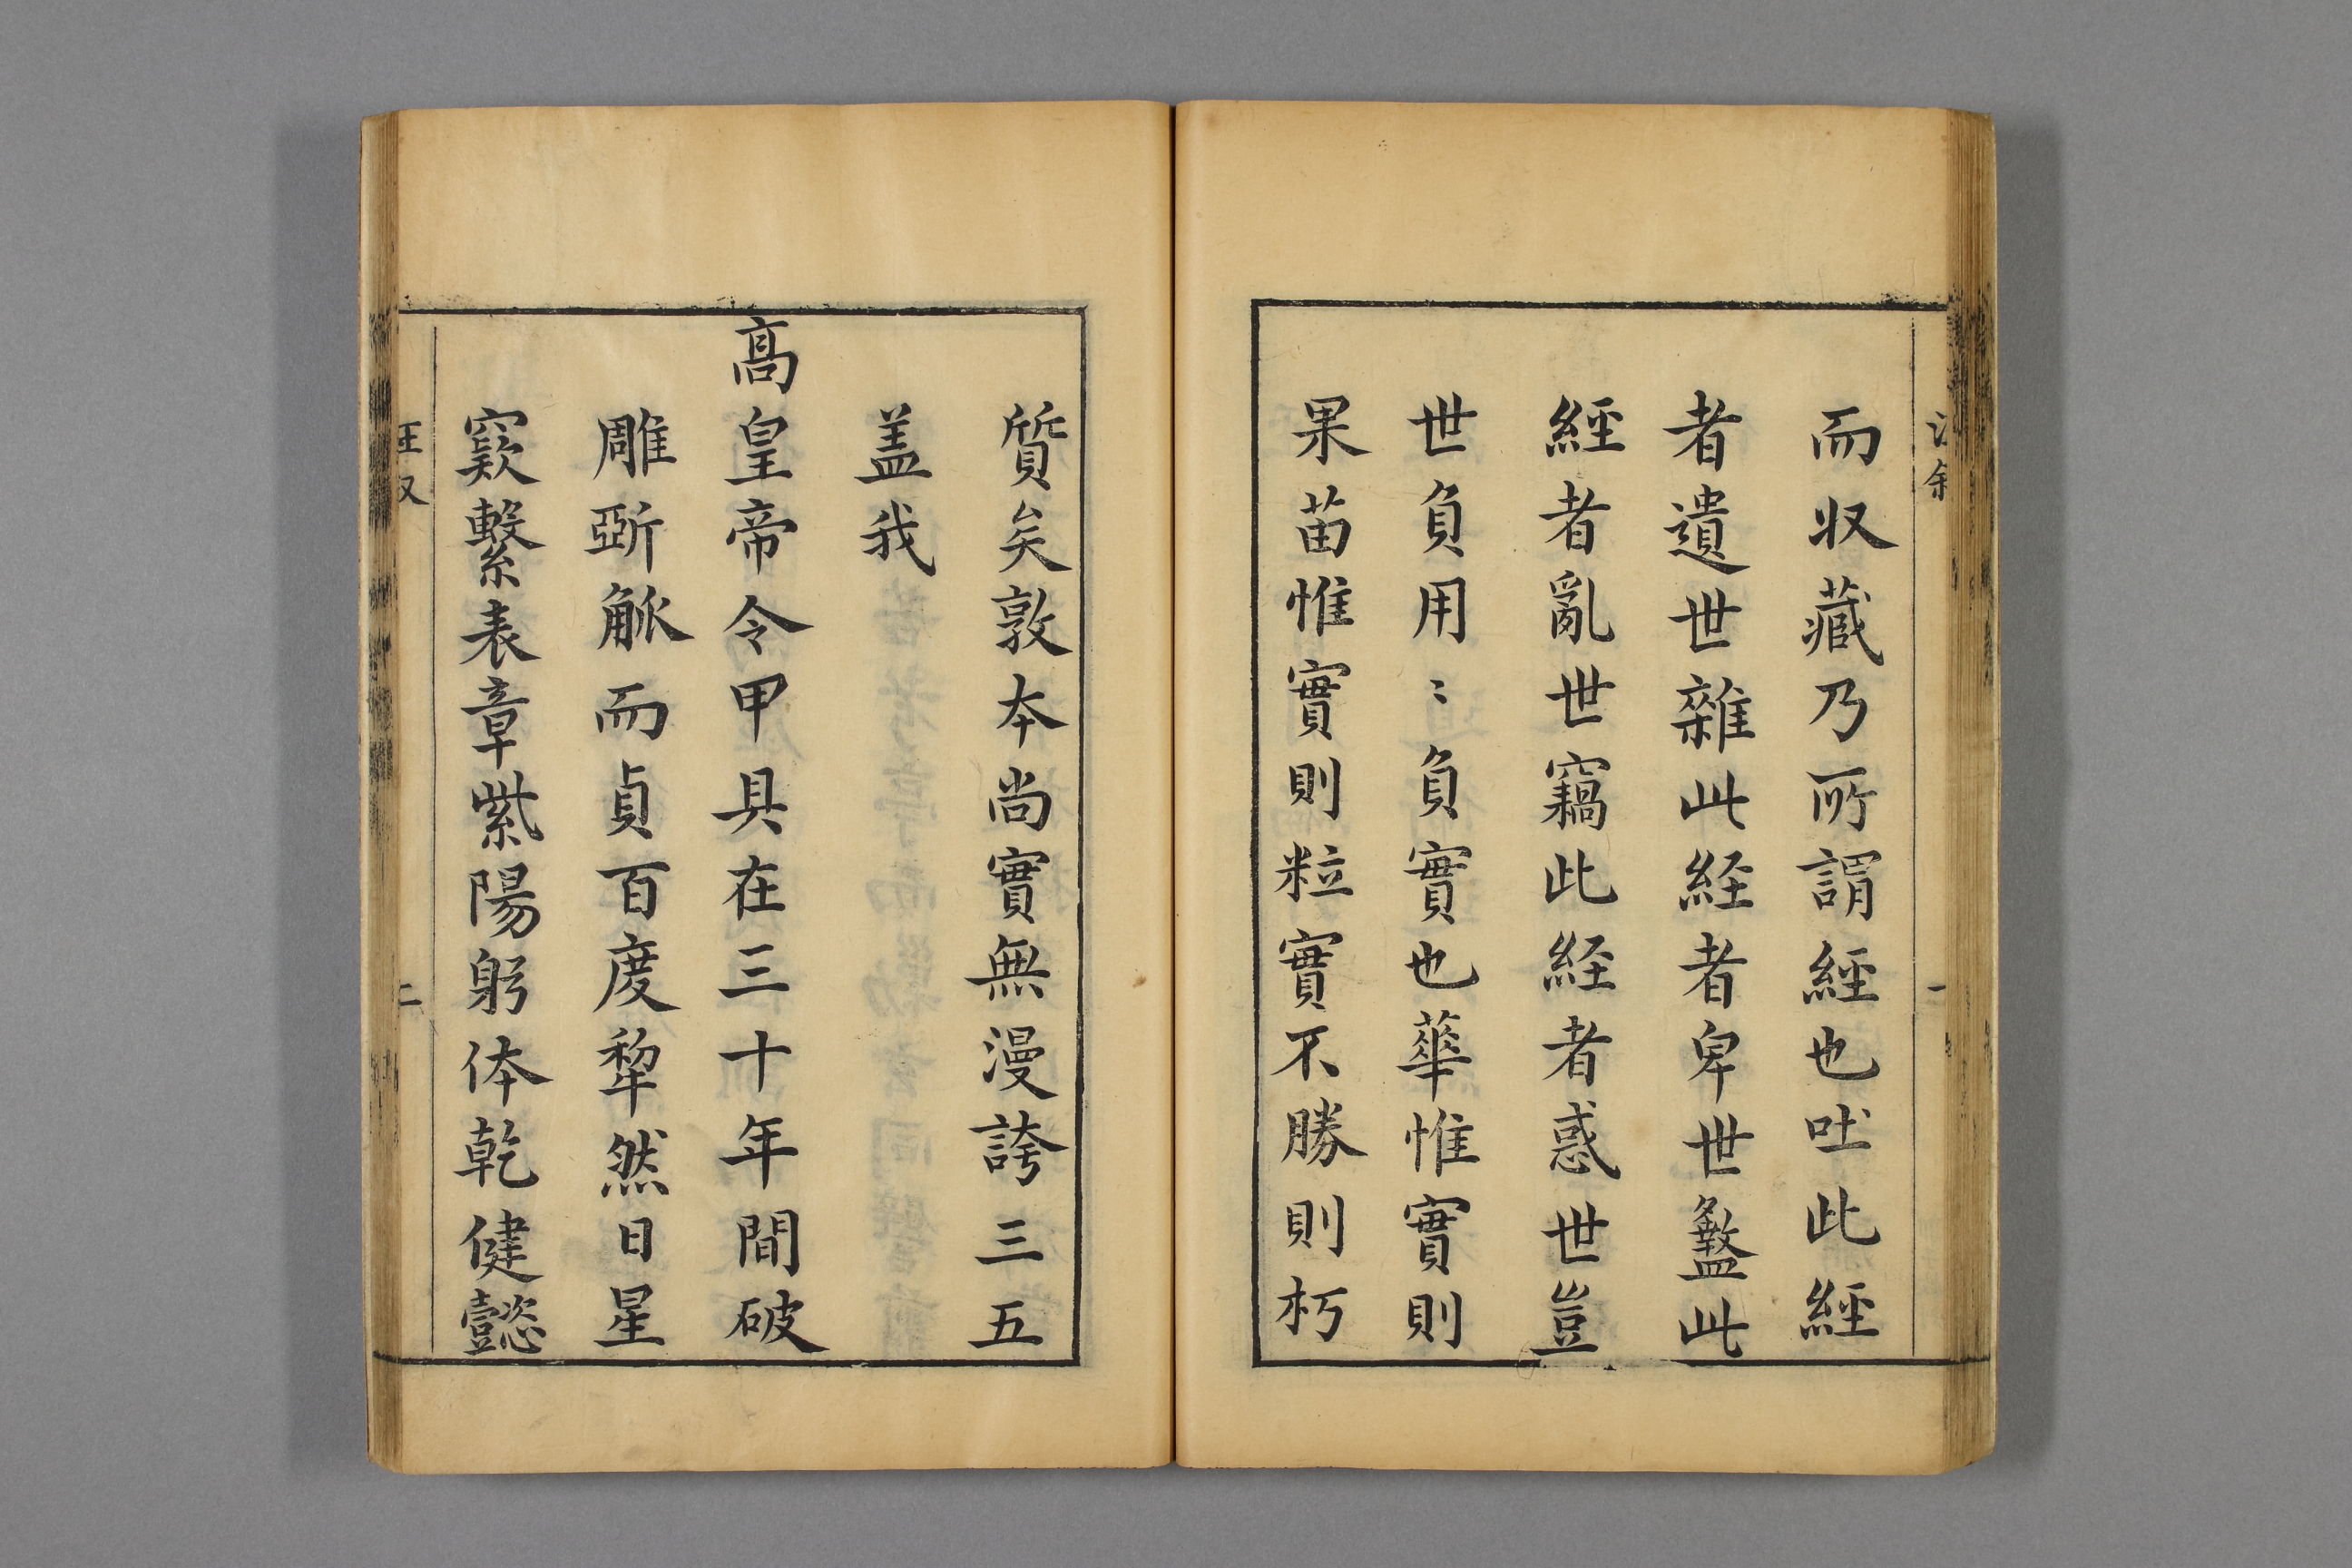 而収藏乃所謂經也吐此經
者遺世雜此経者卑世盭此
經者亂世竊此経者惑世豈
世負用〻負實也華惟實則
果苗惟實則粒實不勝則朽
質矣敦本尚實無漫誇三五
盖我
高皇帝令甲具在三十年間破
雕斵觚而貞百度犂然日星
窾繫表章紫陽躬体乾健懿